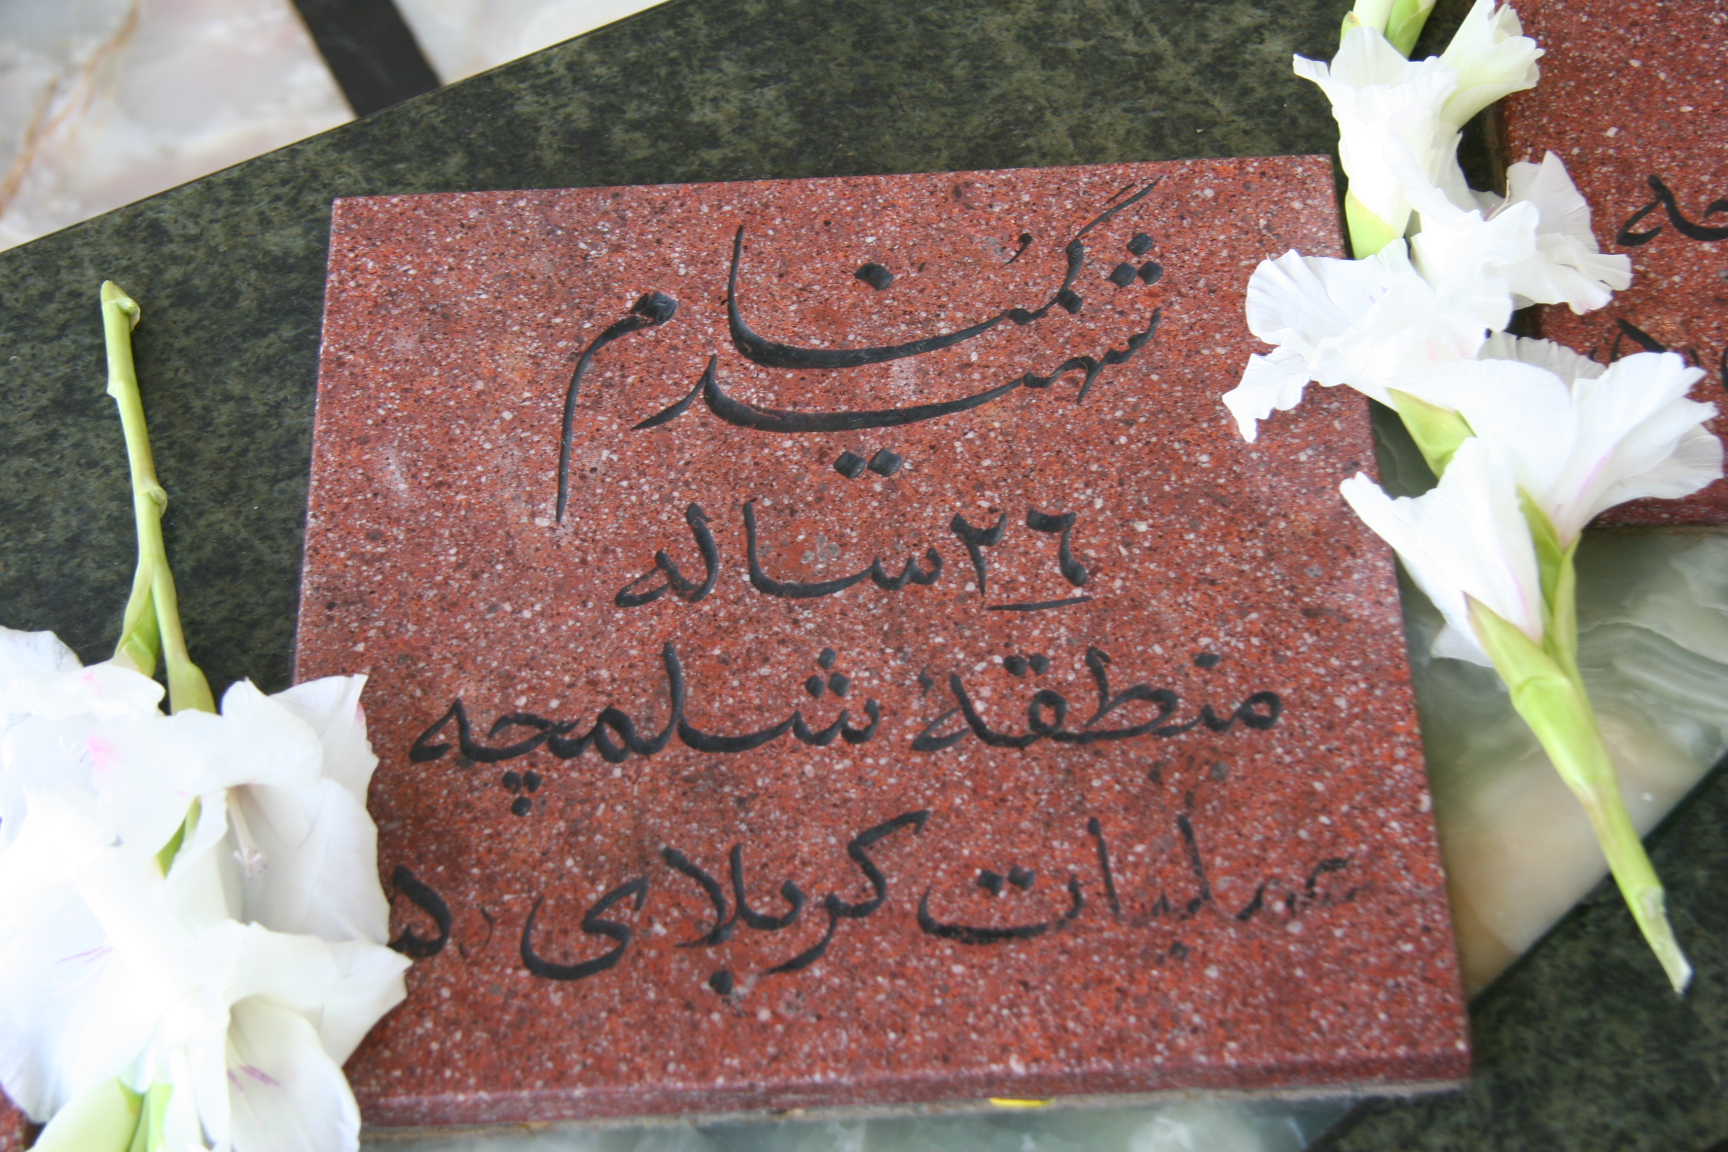 شهید گُمنام
۲۶ ساله
منطقهٔ شلمچه
عملیات کربلای ۵